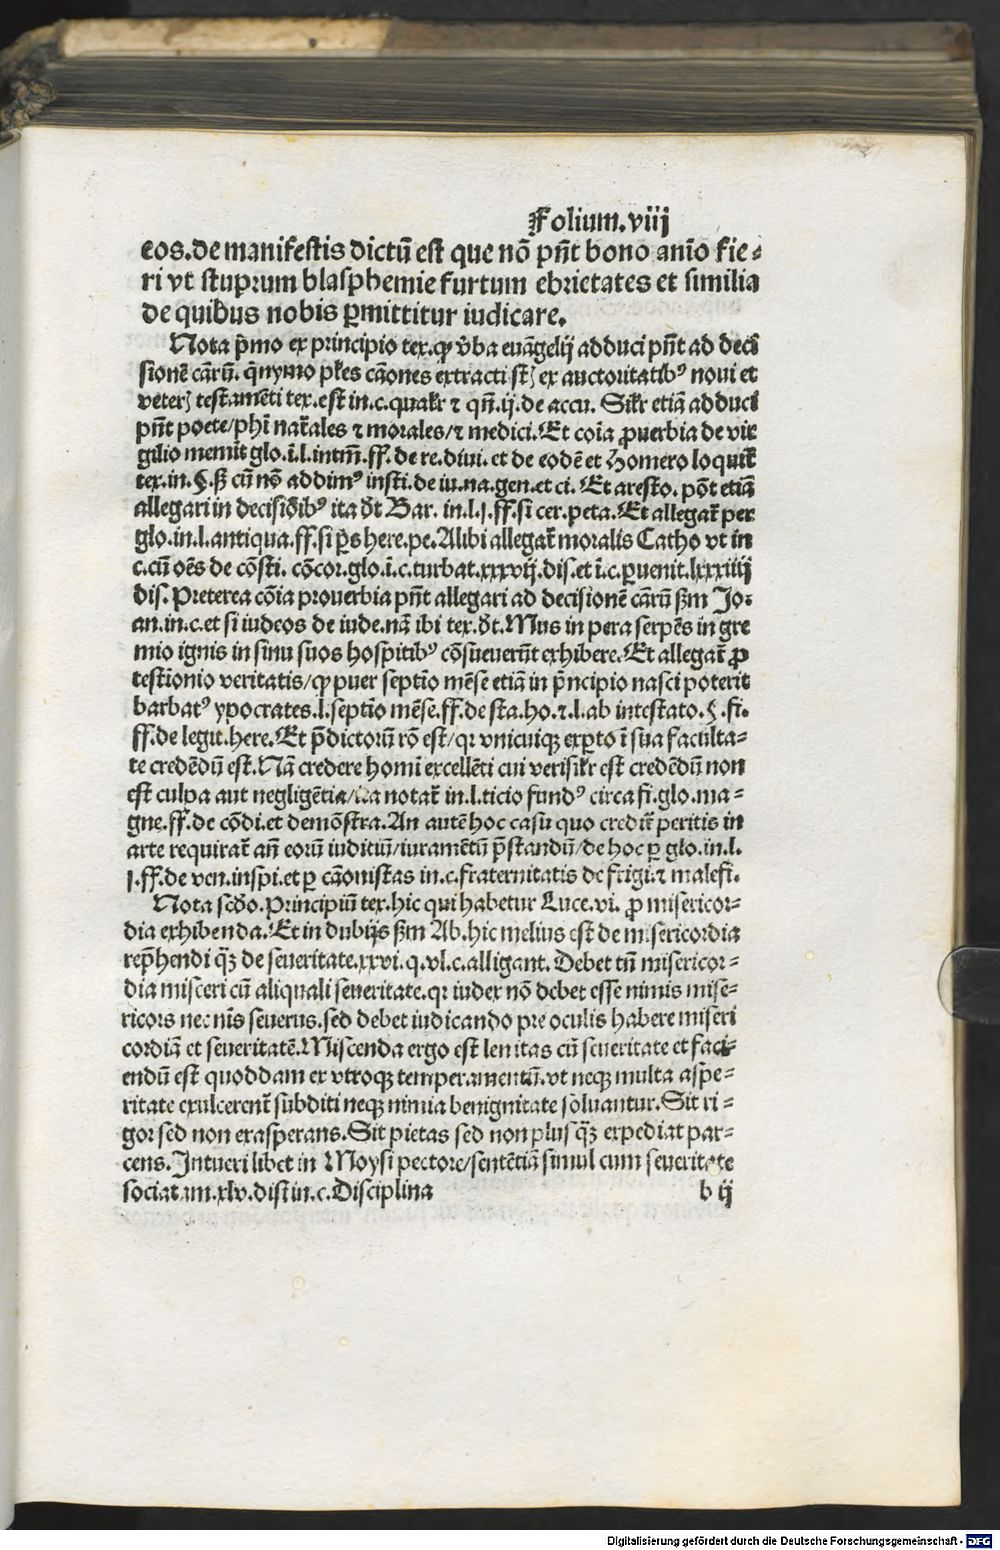 Folium.viij
eos.de manifestis dictū est que nō pn̄t bono anīo fie⸗
ri vt stuprum blasphemie furtum ebrietates et similia
de quibus nobis ꝑmittitur iudicare.
Nota p̄mo ex principio tex.ꝙ v̄ba euāgelij adduci pn̄t ad deci
sionē cārū. q̄nymo pl̄es cāones extracti st̄ ex auctoritatibꝰ noui et
veterꝫ testamēti tex.est in.c.qual̓r ⁊ qn̄.ij.de accu. Sil̓r etiā adduci
pn̄t poete/phi̅ nat̄ales ⁊ morales/⁊ medici.Et cōia ꝓuerbia de vir
gilio meminit glo.ī.l.intm̄.ff.de re.diui.et de eodē et Homero loquit̄
tex.in.§.ß cū nō addimꝰ insti.de iu.na.gen.et ci. Et aresto. pōt etiā
allegari in decisiōibꝰ ita d̄t Bar. in.l.j.ff.si cer.peta.Et allegat̄ per
glo.in.l.antiqua.ff.si ꝑs here.pe.Alibi allegat̄ moralis Catho vt in
c.cū oēs de cōsti. cōcor.glo.ī.c.turbat.xxxvij.dis.et ī.c.ꝑuenit.lxxxiiij
dis. Preterea cōia prouerbia pn̄t allegari ad decisionē cārū ẜm Jo⸗
an.in.c.et si iudeos de iude.nā ibi tex.d̄t.Mus in pera serpēs in gre
mio ignis in sinu suos hospitibꝰ cōsueuerūt exhibere.Et allegat̄ ꝓ
testionio veritatis/ꝙ puer septīo mēse etiā in p̄ncipio nasci poterit
barbatꝰ ypocrates.l.septīo mēse.ff.de sta.ho.⁊.l.ab intestato.§.fi.
ff.de legit.here.Et p̄dictorū rō est/qꝛ vnicuiqꝫ exꝑto ī sua faculta⸗
te credēdū est.Nā credere homī excellēti cui verisil̓r est credēdū non
est culpa aut negligētia/ita notat̄ in.l.ticio fundꝰ circa fi.glo.ma⸗
gne.ff.de cōdi.et demōstra.An autē hoc casu quo credit̄ peritis in
arte requirat̄ an̄ eorū iuditiū/iuramētū p̄standū/de hoc ꝑ glo.in.l.
j.ff.de ven.inspi.et ꝑ cāonistas in.c.fraternitatis de frigi.⁊ malefi.
Nota scd̄o.Principiū tex.hic qui habetur Luce.vi. ꝓ misericor⸗
dia exhibenda.Et in dubijs ẜm Ab.hic melius est de misericordia
rep̄hendi q̄ꝫ de seueritate.xxvi.q.vl.c.alligant. Debet tn̄ misericor⸗
dia misceri cū aliquali seueritate.qꝛ iudex nō debet esse nimis mise⸗
ricors nec nīs seuerus.sed debet iudicando pre oculis habere miseri
cordiā et seueritatē.Miscenda ergo est lenitas cū seueritate et faci⸗
endū est quoddam ex vtroqꝫ temperamentū.vt neqꝫ multa aspe⸗
ritate exulcerent̄ subditi neqꝫ nimia benignitate soluantur.Sit ri⸗
gor sed non exasperans.Sit pietas sed non plus q̄ꝫ expediat par⸗
cens. Intueri libet in Moysi pectore/sentētiā simul cum seueritate
sociatam.xlv.dist in.c.Disciplina
b ij
Digitalisierung gefördert durch die Deutsche Forschungsgemeinschaft - DFG